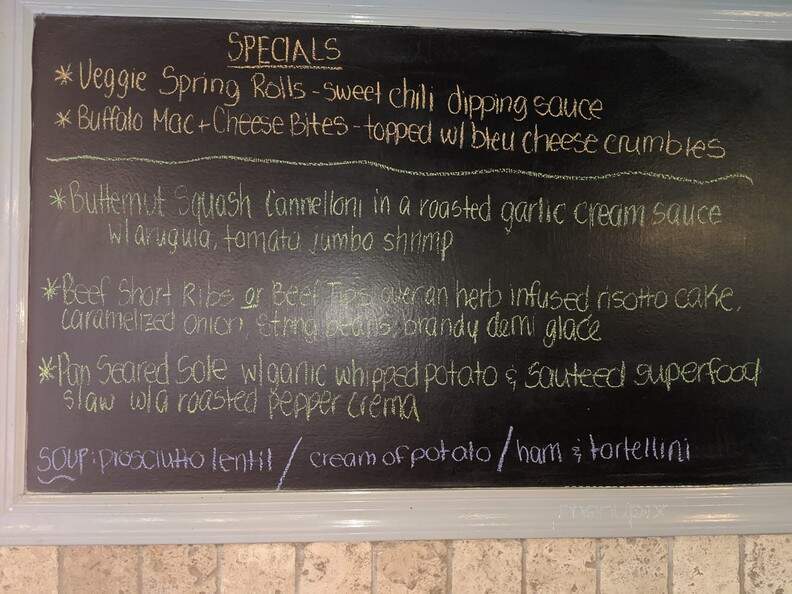 SPECIALS
* Veggie Spring Rolls - sweet chili dipping sauce
* Buffalo Mac + Cheese Bites - topped w/ bleu cheese crumbles
* Butternut Squash Cannelloni in a roasted garlic cream sauce
w/ arugula, tomato jumbo shrimp
* Beef Short Ribs or Beef Tips over an herb infused risotto cake,
caramelized onion, string beans, brandy demi glace
* Pan Seared Sole w/ garlic whipped potato & sauteed superfood
slaw w/ a roasted pepper crema
SOUP: prosciutto lentil / cream of potato / ham & tortellini
menupix